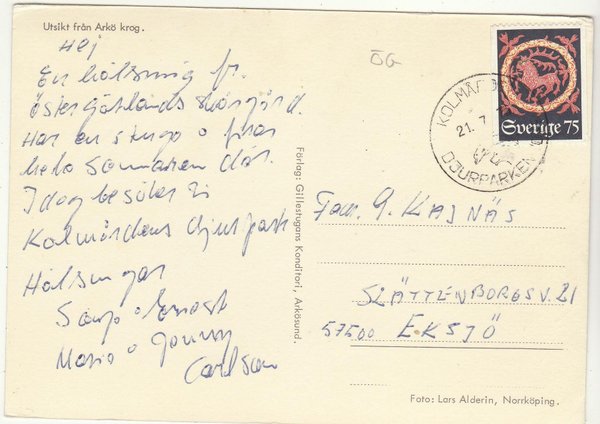 Utsikt från Arkö krog.
Hej
En hälsning fr.
Östergötlands skärgård.
Har en stuga o firar
hela sommaren där.
Idag besöker vi
Kolmårdens djurpark
Hälsningar
Ernst
Maria o Jonny
Carlson
Förlag: Gillestugans Konditori, Arkösund.
ÖG
KOLMÅRDEN
21. 7
DJURPARKEN
Sverige 75
Fam. G. KAJNÄS
SLÄTTENBORGSV. 21
57500 EKSJÖ
Foto: Lars Alderin, Norrköping.